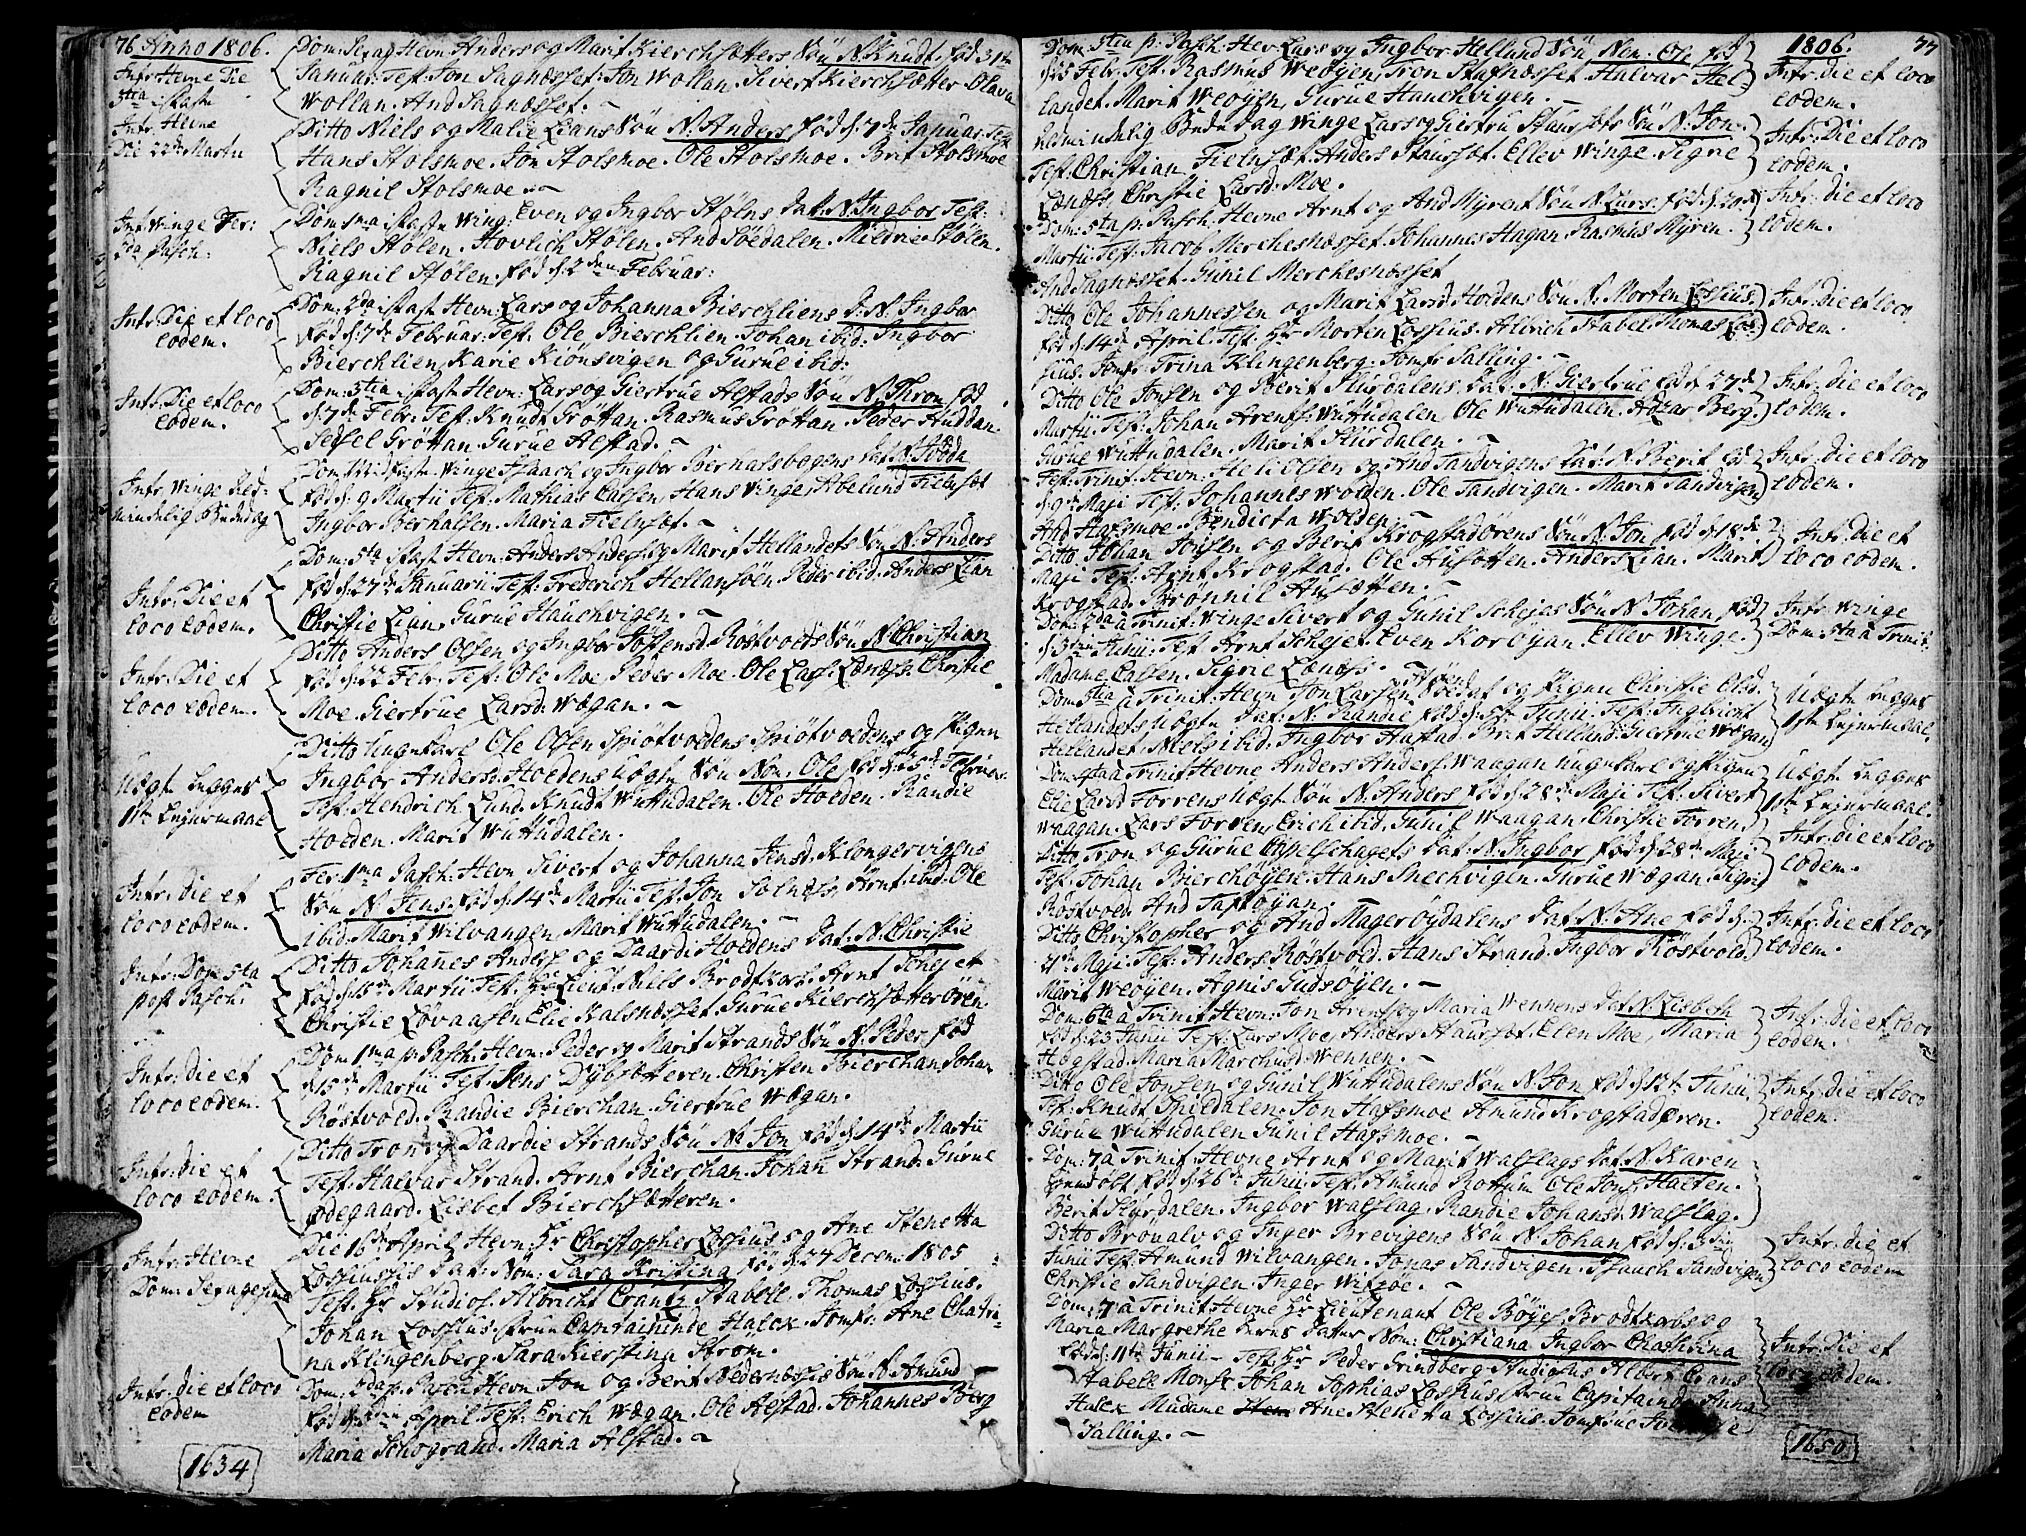 76 Anno 1806.
Intr: Hevne Die
3tia i faste
Dom: Sexag Hevn: Anders og Marit Kierchsætters Søn N. Knudt, fød 31te
Januar: Test: Jon Sagnæsset. Jon Wollan. Sivert Kierchsætter. Olava
Wollan. And Sagnæsset.
Intr: Hevne
Die 22de Martii
Ditto Niels og Malie Lians Søn N. Anders fød d: 7de Januar: Test:
Hans Stolsmoe. Jon Stolsmoe. Ole Stolsmoe. Brit Stolsmoe
Ragnil Stolsmoe
Intr. Winge Fer:
2da Pasch:
Dom 1ma i faste Wing: Even og Ingbor Stølens Dat. N. Ingbor Test:
Niels Stølen. Hovlich Stølen. And Søedalen. Mildrie Stølen.
Ragnil Stølen. fød d: 2den Februar:
Intr: Die et loco
eodem.
Dom: 2da i fast: Hevn: Lars og Johanna Bierchliens D. N. Ingbor
fød d: 7de Februar: Test: Ole Bierchlien. Johan ibid: Ingbor
Bierchlien, Karie Kionsvigen og Gurue ibid:
Intr: Die et loco
eodem.
Dom: 3tia i fast: Hevn: Lars og Giertrue Alstads Søn N. Thron fød
d: 7de Febr: Test: Knudt Grøttan. Rasmus Grøttan. Peder Huddan.
Sedsel Grøttan. Gurue Alstad.
Intr. Winge Ald-
mindelig Bededag
Dom: Midfaste Winge Isaach og Ingbor Berhalsbogens Dat N. Golda
fød d: 9 Martii Test: Mathias Calsen, Hans Winge, Abelund Fielnset
Ingbor Berhalsen. Maria Fielnset.
Intr: Die et
loco eodem.
Dom: 5ta i fast: Hevn: Anders Anders: og Marit Hellandets Søn N. Anders
fød d: 27de Januarii Test: Frederich Hellansøen. Peder ibid. Anders Lian
Christie Lian. Gurue Hauchvigen.
Intr: Die et
loco eodem.
Ditto Anders Olsen og Ingbor Tostensd: Røstvolds Søn N Christian
fød d: 22 Febr: Test: Ole Moe, Peder Moe. Ole Lars: Lenæss. Christie
Moe. Giertrue Larsd: Wægan.
Uægt: begges
1ste Lejermaal
Ditto Ungekarl Ole Olsen Spiøtvoldens Spiøtvoldens og Pigen
Ingbor Andersd: Hoedens Uægte Søn Nom: Ole fød d: 15de Febru:
Test: Hendrich Lund. Knudt Wuttudalen. Ole Hoeden. Randie
Hoeden. Marit Wuttudalen.
Intr: die et
loco eodem.
Fer. 1ma Pasch: Hevn Sivert og Johanna Jensd: Klongervigens
Søn N. Jens. fød d: 14de Martii Test: Jon Solness. Arnt ibid. Ole
ibid: Marit Wilvangen, Marit Wuttudalen.
Intr: Dom 5ta
post Pasch:
Ditto Johannes Anders: og Daardi Hoedens Dat: N. Christie
fød d: 15de Martii Test: Hr Lieut: Niels Brodtkorb. Arnt Schejet
Christie Lovaasen. Elie Kalsnæsset. Gurue Kierchsetterøren.
Intr: die et
loco eodem.
Dom 1ma p: Pasch: Hevn: Peder og Marit Strands Søn N. Peder fød
d: 15de Martii Test: Jens Dybsetteren. Christen Bierchan Johan
Røstvold. Randie Bierchan. Giertrue Wægan.
Intr: die et
loco eodem.
Ditto Tron og Daardie Strands Søn N. Jon fød d: 14de Martii
Test: Halvar Strand. Arnt Bierchan. Johan Strand. Gurue
Ødegaard. Lisbet Bierchsætteren.
Intr: Hevne
Dom: Sexagesima
Die 16de April Hevn: Hr Christopher Lossius og Ane Stenetta
Lossiussis Dat: Nom: Sara Kristina fød d: 24 Decem: 1805
Test: Hr Studios: Albricht Crantz Stabell. Thomas Lossius.
Johan Lossius. frue Capitaininde Halck. Jomfr: Ane Chatri-
na Klingenberg. Sara Kierstina Strøm.
Intr: die et loco
eodem
Dom: 2da p: Pasch: Hevn Jon og Berit Nedernæssis Søn N. Amund
fød d: April Test: Erich Wægan. Ole Alstad. Johannes Berg
Maria Schogrand. Maria Alstad.
1634
1806. 77
Dom: 3tia p: Pasch: Hev Lars og Ingbor Helland Søn Nom: Ole fød
d: 25 Febr: Test: Rasmus Weøyen, Tron Stafnesset. Halvar Hel-
landet. Marit Weøyen, Gurue Hauchvigen.
Intr: Die et loco
eodem.
Aldmindelig Bededag Winge Lars og Giertru Staursets Søn N. Jon.
Test: Christian Fielnset. Anders Staurset. Ellev Winge. Sigrie
Lændss. Christie Larsd: Moe.
Intr: Die et loco
eodem.
Dom: 5ta p: Pasch: Hevne Arnt og And Myrens Søn N. Lars. fød d: 20de
Martii Test: Jacob Mercheshesset. Johannes Hagan. Rasmus Myren.
And Sagnesset. Gunil Merchesnesset
Intr: die et loco
eodem.
Ditto Ole Johannessen og Marit Larsd: Hoedens Søn N. Morten Lossius.
fød d: 14de April. Test: Hr Morten Lossius. Albrich Stabel Thomas Los-
sius. Jomfr: Trina Klingenberg. Jomfr Salling.
Intr: die et loco
eodem.
Ditto Ole Jonsen og Berit Sturdalens Dat: N. Giertrue fød d: 27de
Martii: Test: Johan Arents: Wuttudalen. Ole Wuttudalen. Adzar Berg.
Gurue Wuttudalen. Marit Sturdalen.
Intr: die et loco
eodem.
Fest: Trinit: Hevn: Hel: Olsen og And Sandvigens Dat: N. Berit fød
d: 9de Maji Test: Johannes Wolden. Ole Sandvigen. Marit Sandvigen
And Hafsmoe. Bendicta Wolden.
Intr: Die et loco
eodem.
Ditto Johan Jonsen og Berit Krogstadørens Søn N. Jon fød d: 18de
Maji Test: Arnt Krogstad. Ole Husetten. Anders Lian. Marit
Krogstad. Brønnil Husetten.
Intr: Die et
loco eodem.
Dom: 2da a Trinit: Winge Sivert og Gunil Schejes Søn N. Johan, fød
d: 3die Junii Test: Arnt Schejet. Even Korøyan. Ellev Winge.
Madame Calsen. Sigrie Lænæss.
Intr: Winge
Dom: 5ta a Trinit:
Dom: 3tia a Trinit: Hevn Jon Larsen Soldat og Pigen Christie Olsd:
Hellandets Uægte Dat: N. Randie fød d: 5te Junii: Test: Ingbricht
Hellandet. Niels ibid: Ingbor Hustad. Brit Helland. Giertrue Wægan
Uægte begges
1ste Lejermaal.
Dom: 4ta a Trinit Hevne Anders Anders: Waagan ungekarl og Pigen
Elie Larsd Forrens Uægte Søn N. Anders fød d: 28de Maji Test: Sivert
Waagan. Lars Forren, Erich ibid. Gunil Waagan. Christie Forren.
Uægte begges
1ste Lejermaal
Ditto Tron og Gurue Engelschagets Dat: N. Ingbor fød d: 28de Maji
Test: Johan Bierchøyen. Hans Snechvigen. Gurue Wægan. Sigri
Røstvold. And Taftøyan.
Intr: die et loco
eodem.
Ditto Christopher og And Magerøydalens Dat: N. Ane fød d:
31te Maji. Test: Anders Røstvold. Hans Strand. Ingbor Røstvold.
Marit Weøyen. Agnis Gudsøyen.
Intr: die et loco
eodem
Dom: 6ta a Trinit Hevn: Jon Arents: og Maria Wennens Dat: N. Lisbeth
fød d: 23 Junii Test: Lars Moe, Anders Staurset. Elen Moe, Maria
Hogstad. Maria Marchusd: Wennen.
Intr: die et loco
eodem.
Ditto Ole Jonsen og Gunil Wuttudalens Søn N. Jon fød d: 12te Junii
Test: Knudt Spildalen. Jon Hafsmoe. Amund Krogstadøren.
Gurue Wuttudalen. Gunil Hafsmoe.
Intr: die et loco
eodem.
Dom: 7 a Trinit: Hevne Arnt og Marit Walslags Dat: N. Karen
fød d: 26de Junii. Test: Amund Rottum. Ole Jons: Halten.
Berit Styrdalen. Ingbor Walslag. Randie Johansd: Walslag.
Ditto Brøualv og Inger Brevigens Søn N. Johan fød d: 3die
Junii Test: Amund Wilvangen. Jonas Sandvigen. Isaach Sandvigen
Christie Sandvigen. Inger Wixøe.
Intr: die et
loco eodem
Dom: 7 a Trinit: Hevne Hr Lieutenant Ole Bøyes Brodtkorbs og
Maria Margrethe Datter Nom: Christiana Ingbor Chathrina
fød d: 11te Junii – Test: Hr Peder Grindberg. Studiosus Albert Crans
Stabell. Monsr Johan Sophias Lossius. frue Capitainde Anna
Halck. Madame Ane Steneta Lossius. Jomfrue
Salling.
Intr: Die et
loco eodem.
1650